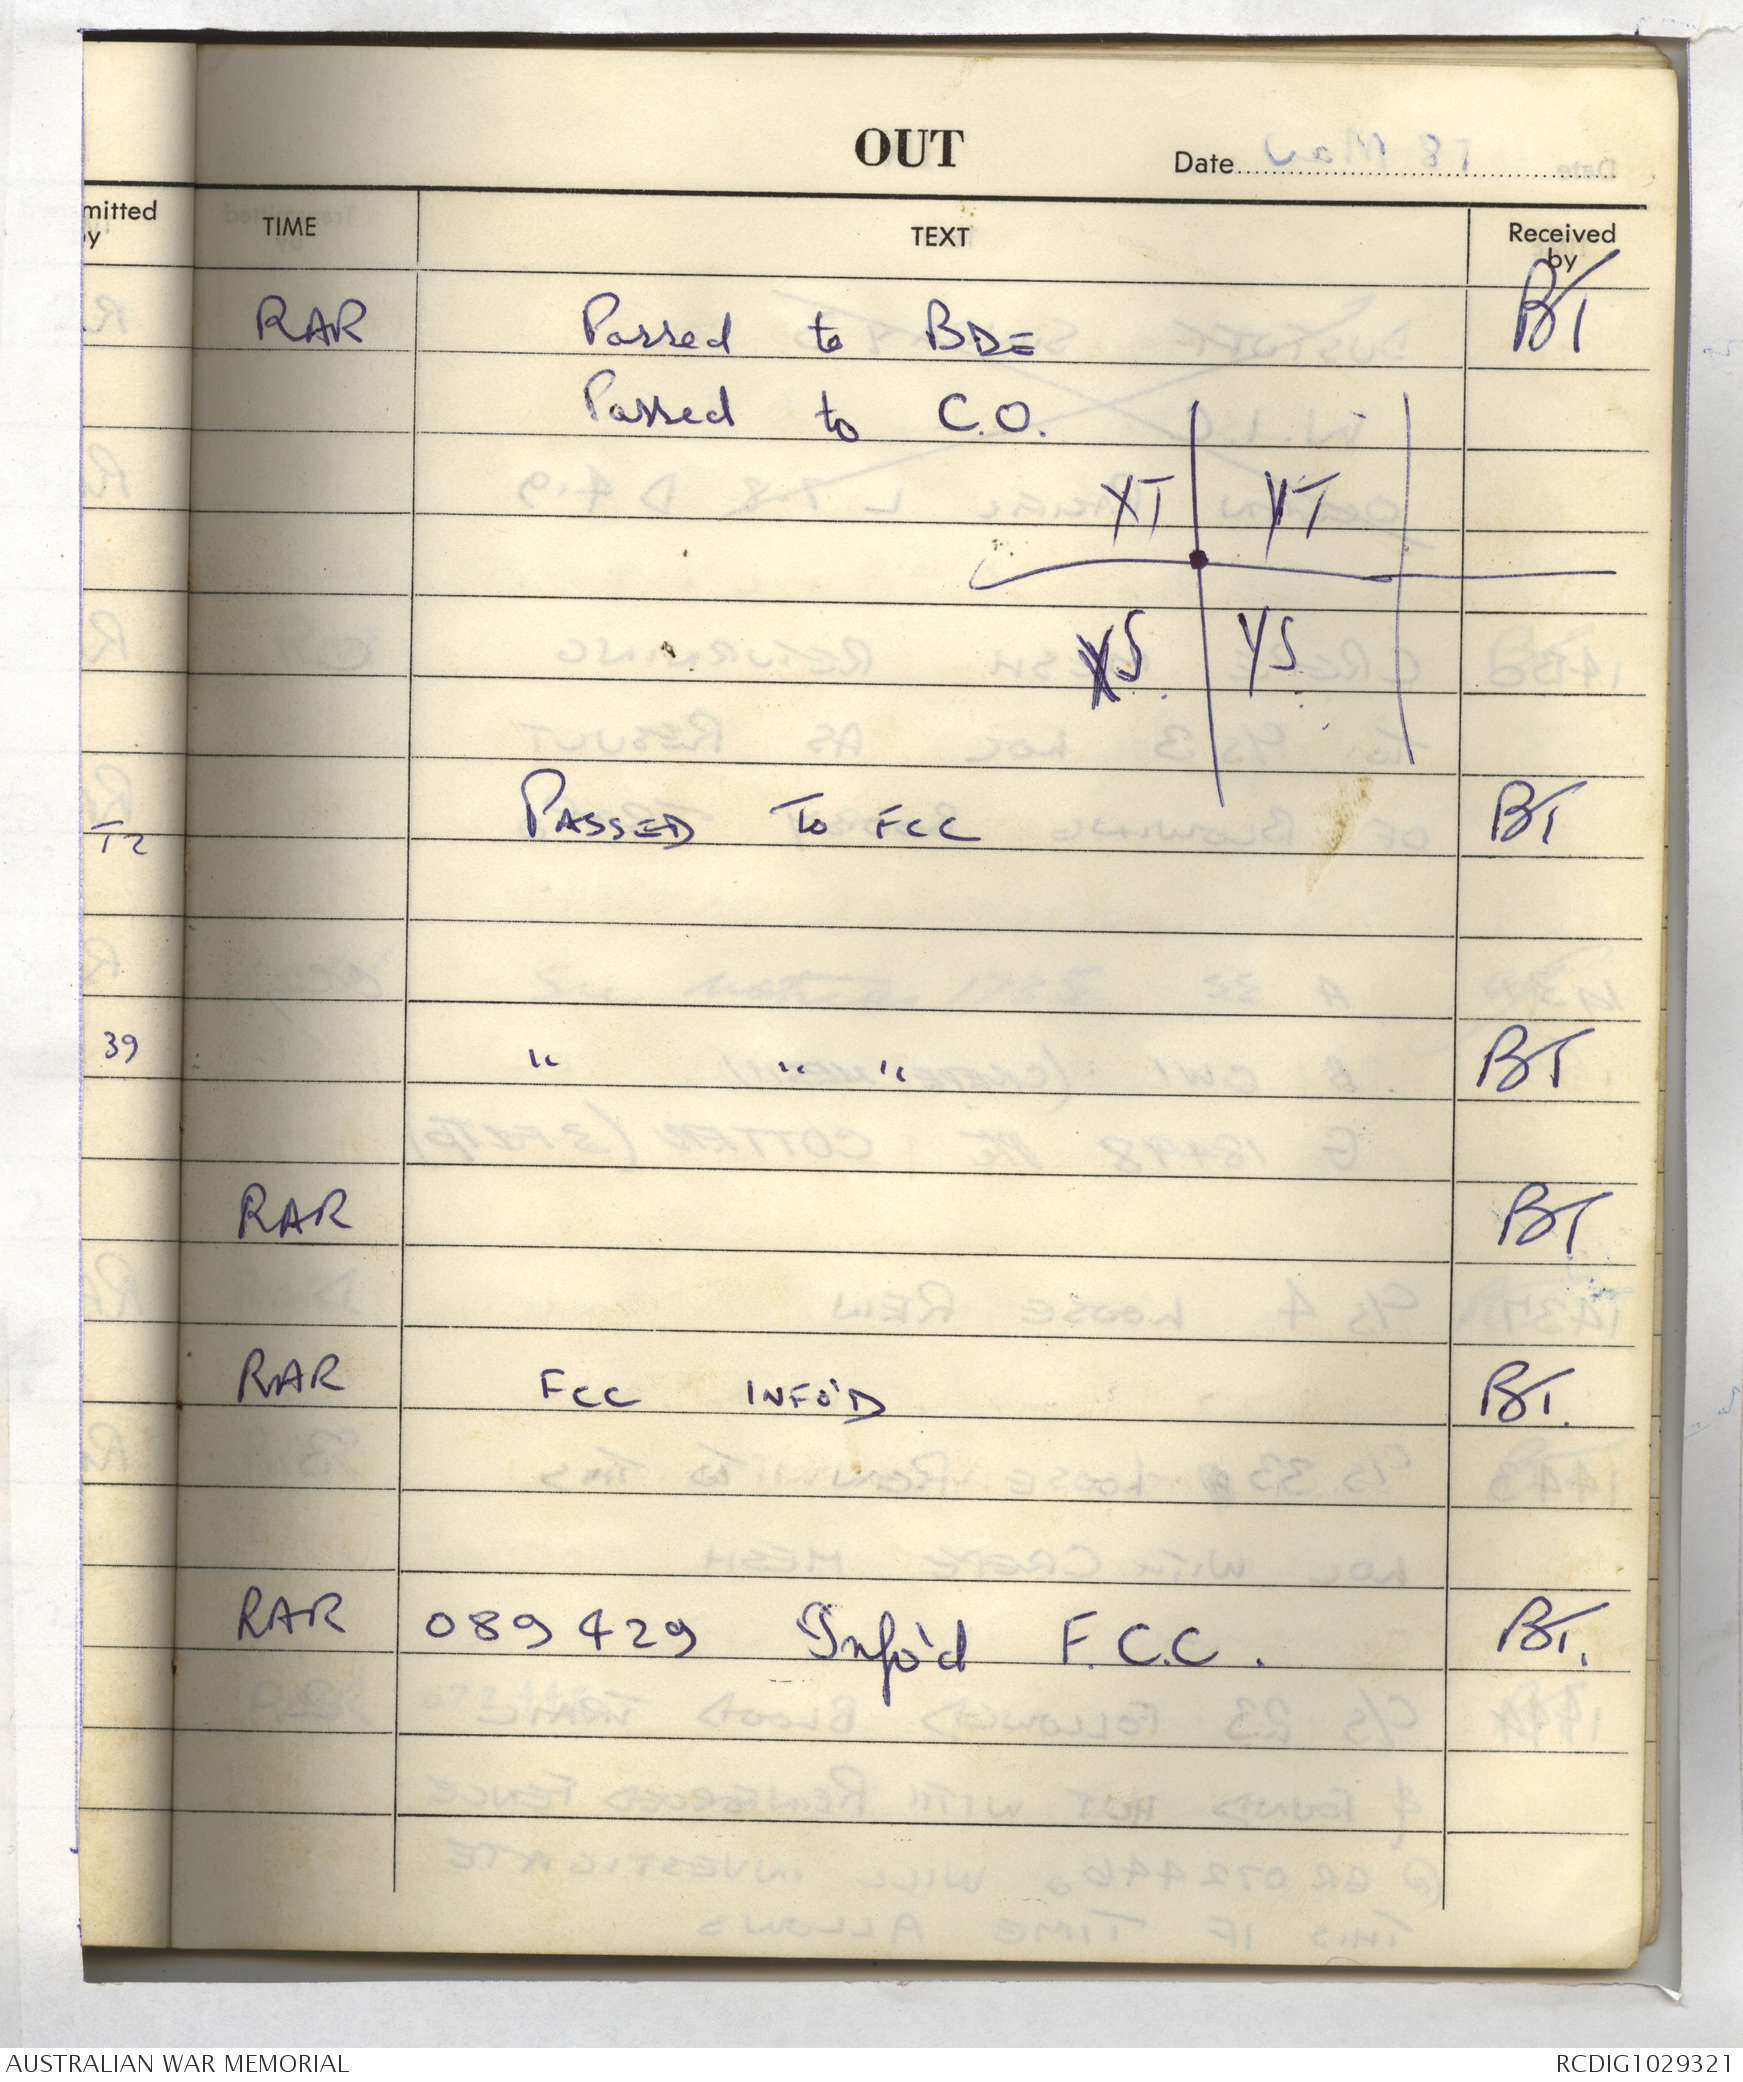 OUT
Date
mitted
y
TIME
TEXT
Received
by
RAR Passed to BDE BT
Passed to C.O.
XT YT
XS. YS.
T2 PASSED To FCC BT
39 " " " BT
RAR BT
RAR FCC INFO'D BT.
RAR 089429 Info'd F.C.C. BT.
AUSTRALIAN WAR MEMORIAL
RCDIG1029321